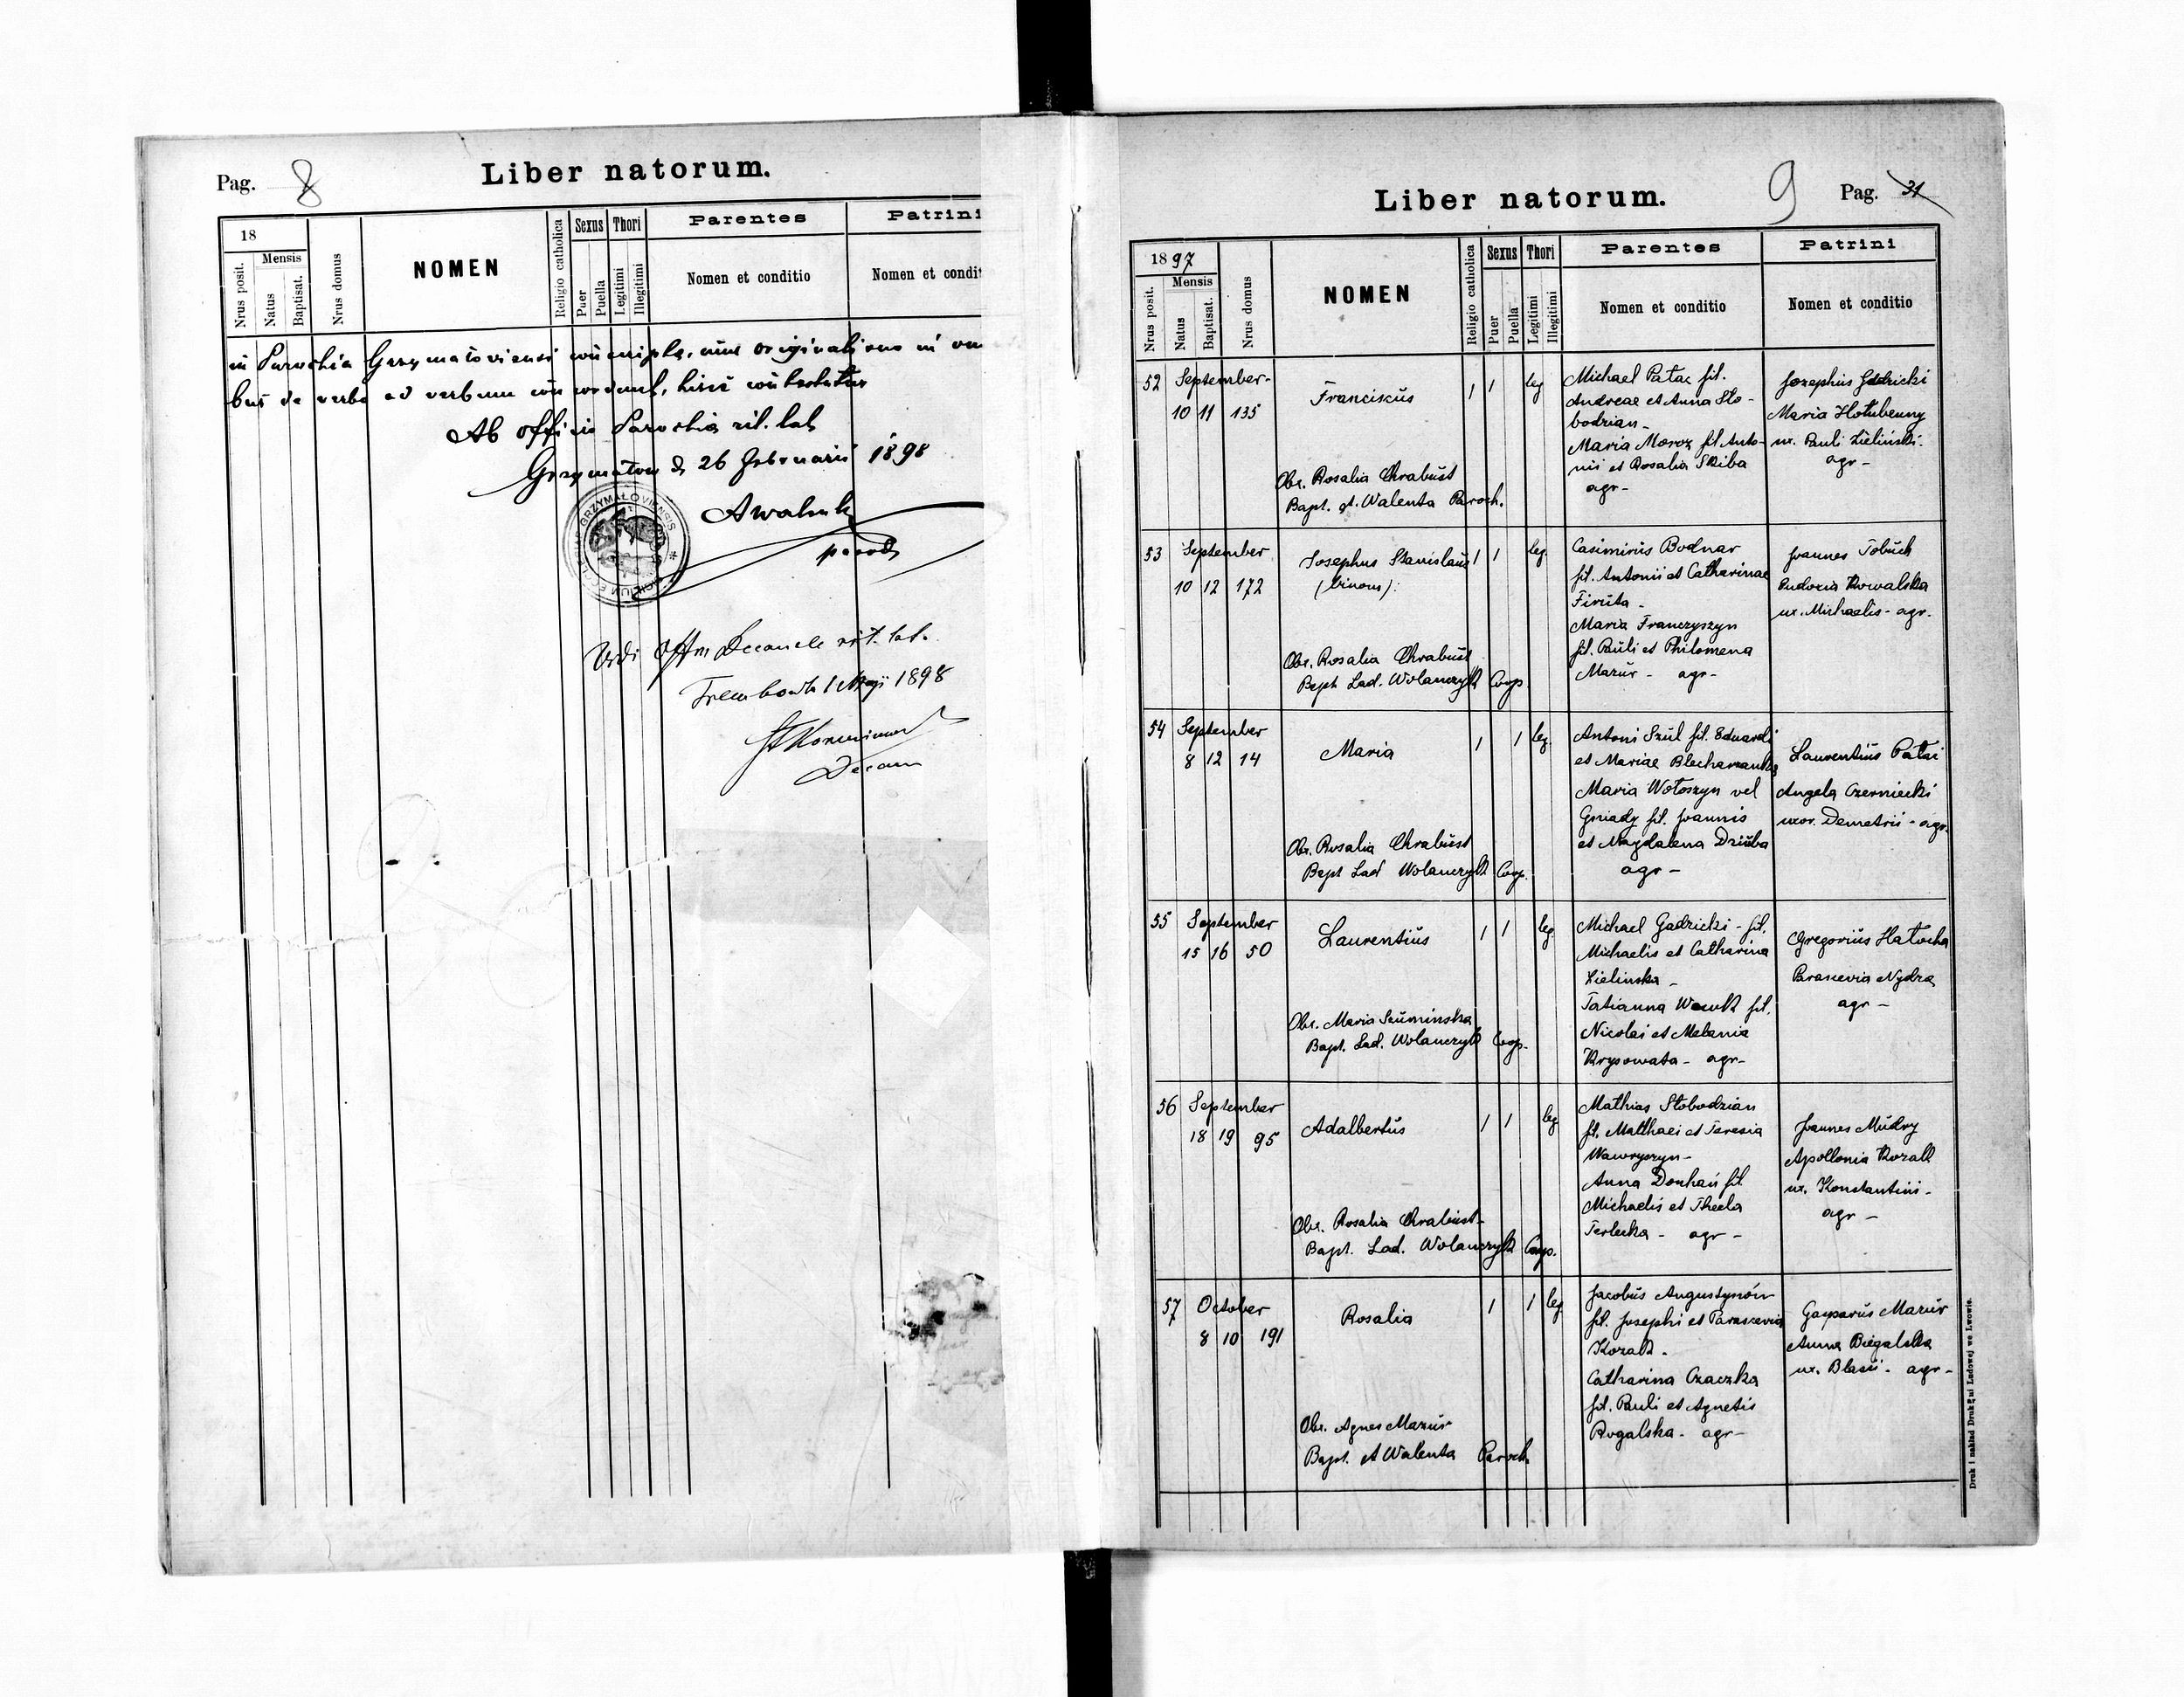 Pag. 8
Liber natorum.
18
Nrus posit.
Mensis
Natus
Baptisat.
Nrus domus
NOMEN
Religio catholica
Sexus
Puer
Puella
Thori
Legitimi
Illegitimi
Parentes
Nomen et conditio
Patrini
Nomen et condit
in Parochia
bus de verbo ad verbum
Ab officio Parochiae rit. lat
26 Februarii 1898
A Walenta
paroch
Vidi Offm Decanale rit. lat.
1 Maji 1898
Decan
Liber natorum.
9 Pag. 31
1897
Nrus posit.
Mensis
Natus
Baptisat.
Nrus domus
NOMEN
Religio catholica
Sexus
Puer
Puella
Thori
Legitimi
Illegitimi
Parentes
Nomen et conditio
Patrini
Nomen et conditio
52 September
10 11 135
Franciscus
1 1 leg
Obs. Rosalia Chrabust
Bapt. A. Walenta Paroch.
Michael Patac fil.
Andreae et Anna Sło-
bodzian -
Maria Moroz fil. Anto-
nii et Rosalia Skiba
agr -
Josephus Gadzicki
Maria
ux. Pauli Zieliński.
agr -
53 September
10 12 172
Josephus Stanislaus
(binom).
1 1 leg.
Obs. Rosalia Chrabust
Bapt Lad. Wolanczyk Coop.
Casimirus Bodnar
fil. Antonii et Catharinae
Firuta -
Maria Franczyszyn
fil. Pauli et Philomena
Mazur - agr -
Joannes Tobuch
Eudoxia Kowalska
ux. Michaelis - agr.
54 September
8 12 14
Maria
1 1 leg.
Obs. Rosalia Chrabust
Bapt Lad Wolanczyk Coop.
Antoni Szul fil. Eduardi
et Mariae
Maria Wołoszyn vel
Gniady fil. Joannis
et Magdalena Dziuba
agr -
Laurentius Patac
Angela Czerniecki
uxor. Demetrii - agr.
55 September
15 16 50
Laurentius
1 1 leg
Obs. Maria Szuminska
Bapt. Lad. Wolanczyk Coop.
Michael Gadzicki - fil.
Michaelis et Catharina
Zielinska -
Tatianna Wowk fil.
Nicolai et Melania
Krysowata - agr -
Gregorius Hałocha
Parascevia Nydza
agr -
56 September
18 19 95
Adalbertus
1 1 leg
Obs. Rosalia Chrabust -
Bapt. Lad. Wolanczyk Coop.
Mathias Słobodzian
fil. Matthaei et Teresia
Wawryszyn -
Anna Donhań fil.
Michaelis et Thecla
Terlecka - agr -
Joannes Mudry
Apollonia Kozak
ux. Konstantini -
agr -
57 October
8 10 191
Rosalia
1 1 leg
Obs. Agnes Mazur
Bapt. A Walenta Paroch.
Jacobus Augustynów
fil. Josephi et Parascevia
Kozak -
Catharina Czaczka
fil. Pauli et Agnetis
Rogalska - agr -
Gasparus Mazur
Anna Biegalska
ux. Blasii - agr -
Druk i nakład Drukarni Ludowej we Lwowie.